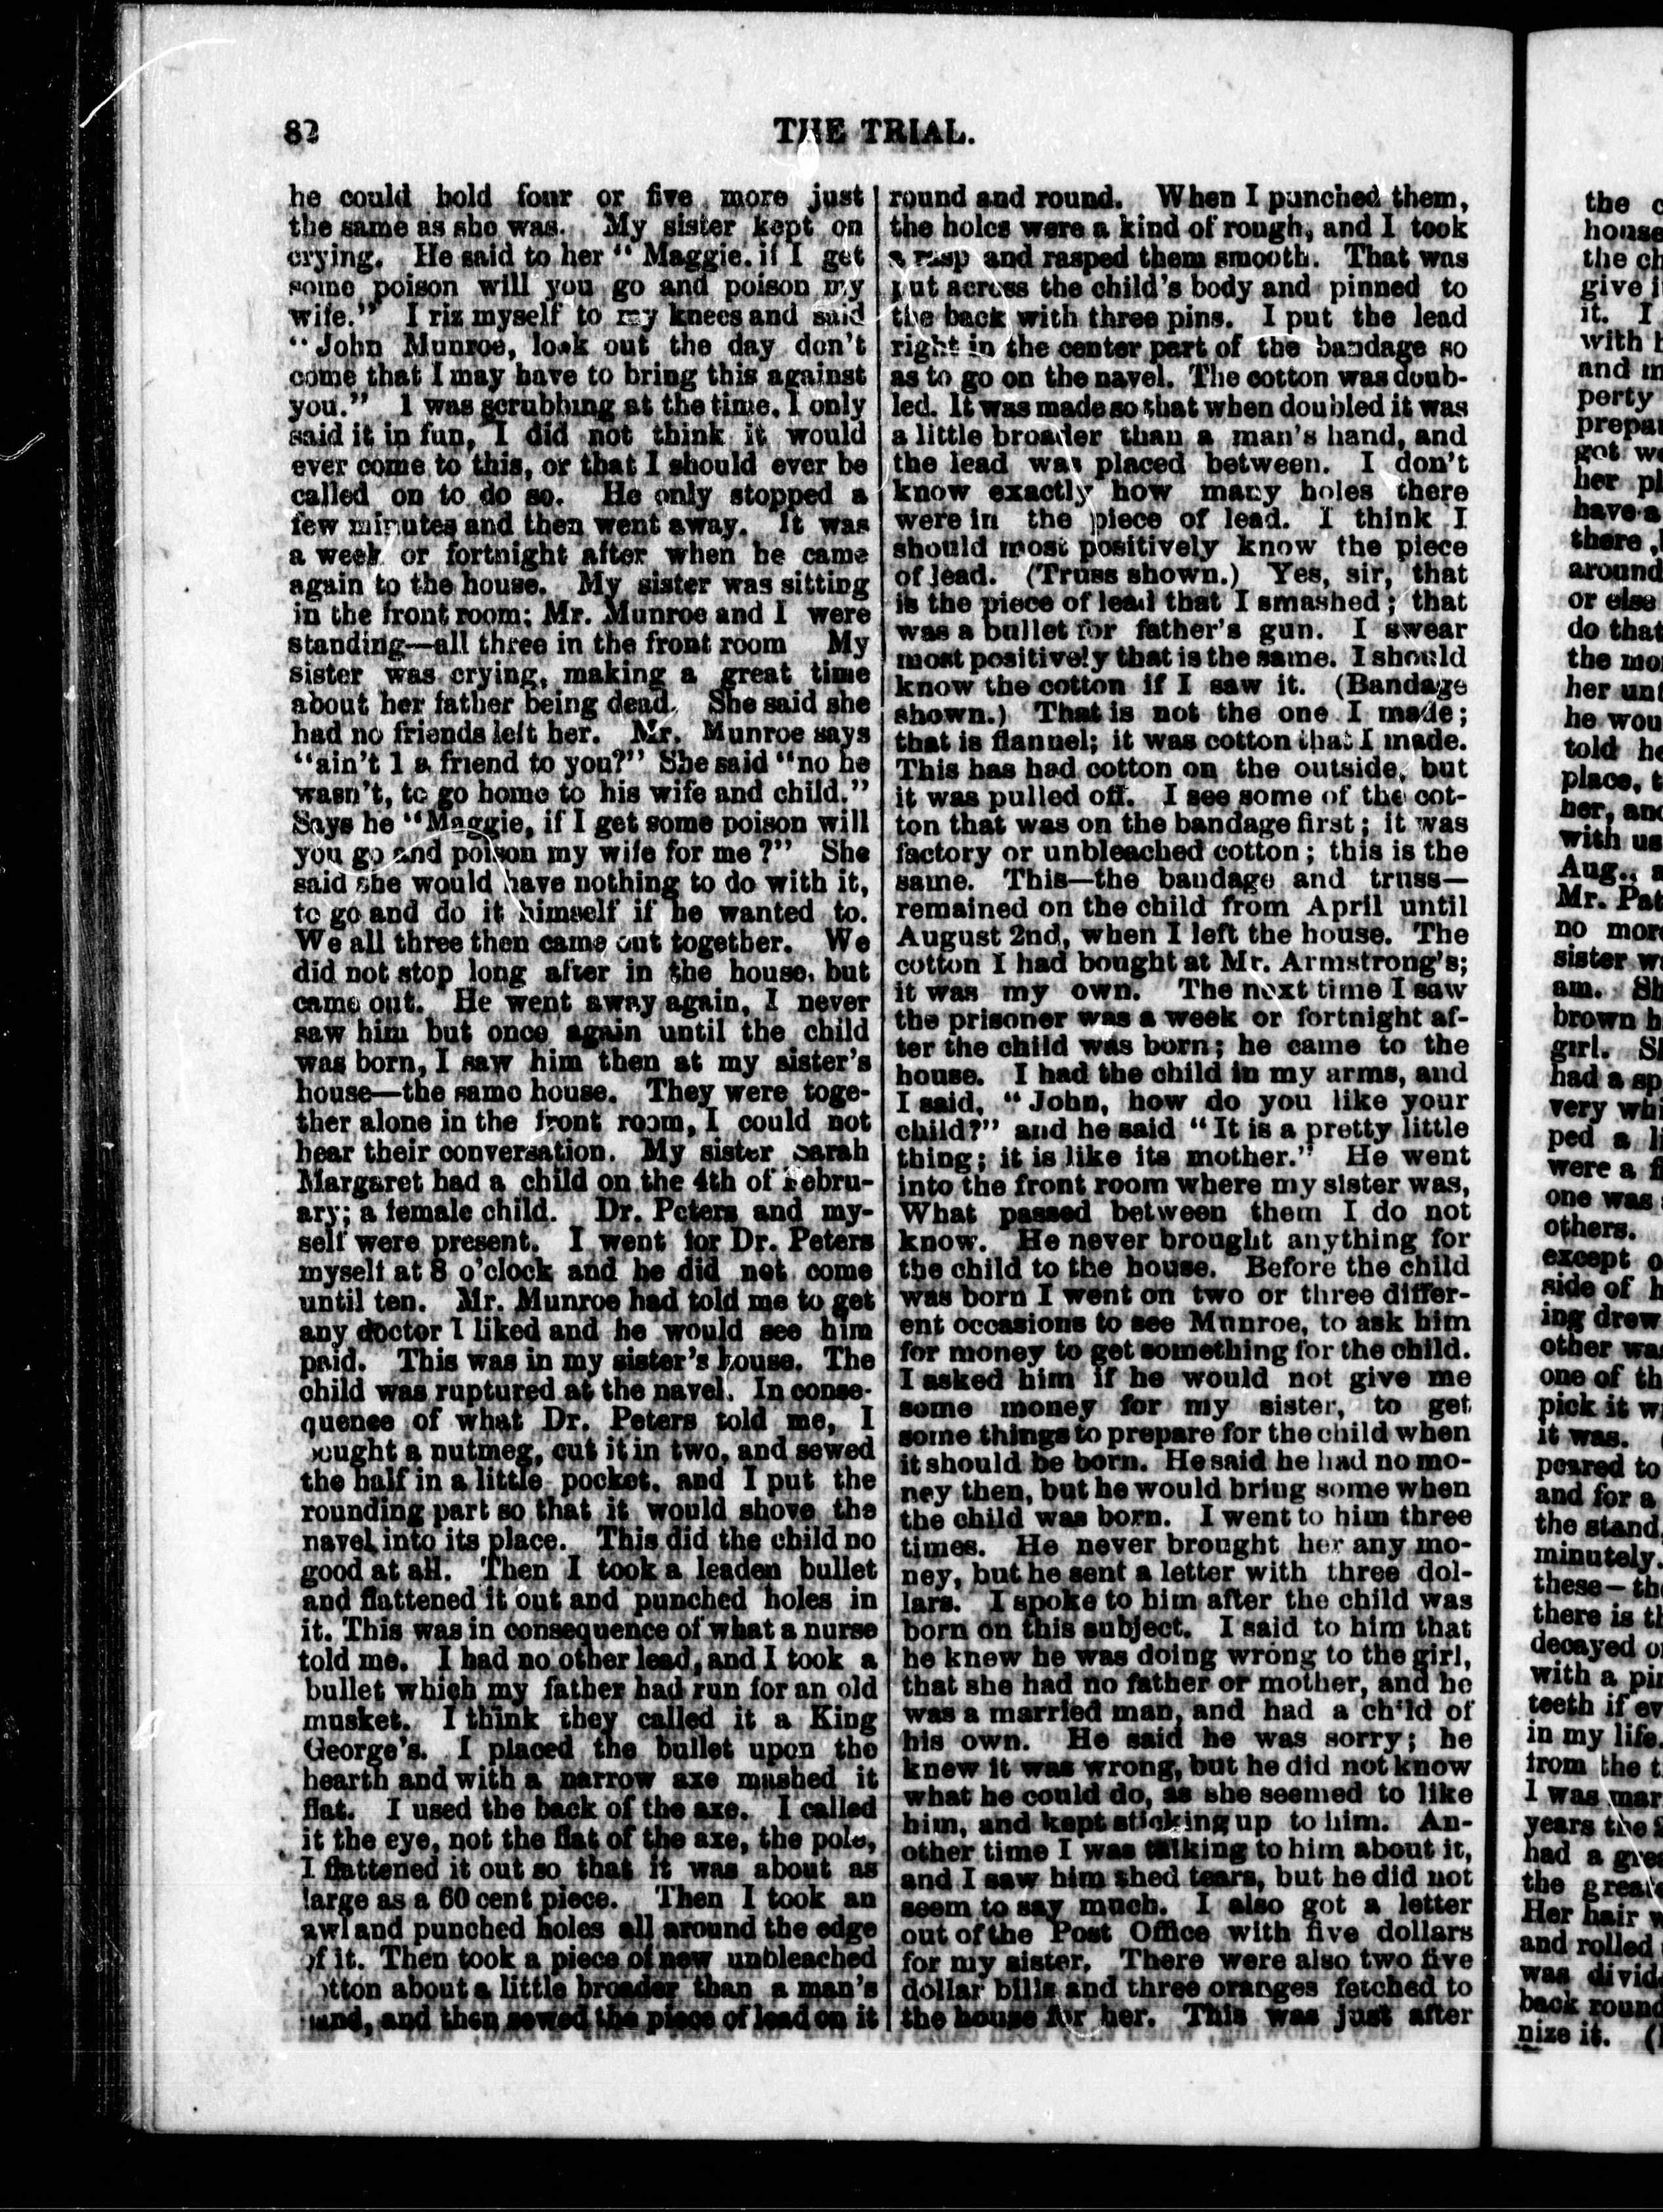 82
THE TRIAL.
he could hold four or five more just
the same as she was. My sister kept on
crying. He said to her "Maggie, if I get
some poison will you go and poison my
wife." I riz myself to my knees and said
"John Munroe, look out the day don't
come that I may have to bring this against
you." I was scrubbing at the time, I only
said it in fun, I did not think it would
ever come to this, or that I should ever be
called on to do so. He only stopped a
few minutes and then went away. It was
a week or fortnight after when he came
again to the house. My sister was sitting
in the front room; Mr. Munroe and I were
standing—all three in the front room My
sister was crying, making a great time
about her father being dead. She said she
had no friends left her. Mr. Munroe says
"ain't I a friend to you?" She said "no he
wasn't, to go home to his wife and child."
Says he "Maggie, if I get some poison will
you go and poison my wife for me?" She
said she would have nothing to do with it,
to go and do it himself if he wanted to.
We all three then came out together. We
did not stop long after in the house, but
came out. He went away again, I never
saw him but once again until the child
was born, I saw him then at my sister's
house—the same house. They were toge-
ther alone in the front room, I could not
hear their conversation. My sister Sarah
Margaret had a child on the 4th of Febru-
ary; a female child. Dr. Peters and my-
self were present. I went for Dr. Peters
myself at 8 o'clock and he did not come
until ten. Mr. Munroe had told me to get
any doctor I liked and he would see him
paid. This was in my sister's house. The
child was ruptured at the navel. In conse-
quence of what Dr. Peters told me, I
bought a nutmeg, cut it in two, and sewed
the half in a little pocket, and I put the
rounding part so that it would shove the
navel into its place. This did the child no
good at all. Then I took a leaden bullet
and flattened it out and punched holes in
it. This was in consequence of what a nurse
told me. I had no other lead, and I took a
bullet which my father had run for an old
musket. I think they called it a King
George's. I placed the bullet upon the
hearth and with a narrow axe mashed it
flat. I used the back of the axe. I called
it the eye, not the flat of the axe, the pole,
I flattened it out so that it was about as
large as a 60 cent piece. Then I took an
awl and punched holes all around the edge
of it. Then took a piece of new unbleached
cotton about a little broader than a man's
hand, and then sewed the piece of lead on it
round and round. When I punched them,
the holes were a kind of rough, and I took
a rasp and rasped them smooth. That was
put across the child's body and pinned to
the back with three pins. I put the lead
right in the center part of the bandage so
as to go on the navel. The cotton was doub-
led. It was made so that when doubled it was
a little broader than a man's hand, and
the lead was placed between. I don't
know exactly how many holes there
were in the piece of lead. I think I
should most positively know the piece
of lead. (Truss shown.) Yes, sir, that
is the piece of lead that I smashed; that
was a bullet for father's gun. I swear
most positively that is the same. I should
know the cotton if I saw it. (Bandage
shown.) That is not the one I made;
that is flannel; it was cotton that I made.
This has had cotton on the outside, but
it was pulled off. I see some of the cot-
ton that was on the bandage first; it was
factory or unbleached cotton; this is the
same. This—the bandage and truss—
remained on the child from April until
August 2nd, when I left the house. The
cotton I had bought at Mr. Armstrong's;
it was my own. The next time I saw
the prisoner was a week or fortnight af-
ter the child was born; he came to the
house. I had the child in my arms, and
I said, "John, how do you like your
child?" and he said "It is a pretty little
thing; it is like its mother." He went
into the front room where my sister was,
What passed between them I do not
know. He never brought anything for
the child to the house. Before the child
was born I went on two or three differ-
ent occasions to see Munroe, to ask him
for money to get something for the child.
I asked him if he would not give me
some money for my sister, to get
some things to prepare for the child when
it should be born. He said he had no mo-
ney then, but he would bring some when
the child was born. I went to him three
times. He never brought her any mo-
ney, but he sent a letter with three dol-
lars. I spoke to him after the child was
born on this subject. I said to him that
he knew he was doing wrong to the girl,
that she had no father or mother, and he
was a married man, and had a child of
his own. He said he was sorry; he
knew it was wrong, but he did not know
what he could do, as she seemed to like
him, and kept sticking up to him. An-
other time I was talking to him about it,
and I saw him shed tears, but he did not
seem to say much. I also got a letter
out of the Post Office with five dollars
for my sister. There were also two five
dollar bills and three oranges fetched to
the house for her. This was just after
the
house
the
give
it. I
with
and
perty
got
her
have a
there
around
or else
do that
the
her
told
place,
her,
with us
Aug.,
Mr.
no more
sister
am.
brown
girl.
had a
very
ped a
were a
one was
others.
except
side of
ing drew
other was
one of
pick it
it was.
peared to
and for a
the stand,
minutely.
these—
there is
decayed
with a
teeth if
in my life.
from the
I was
years the
had a
the
Her hair
and rolled
was
back round
nize it.